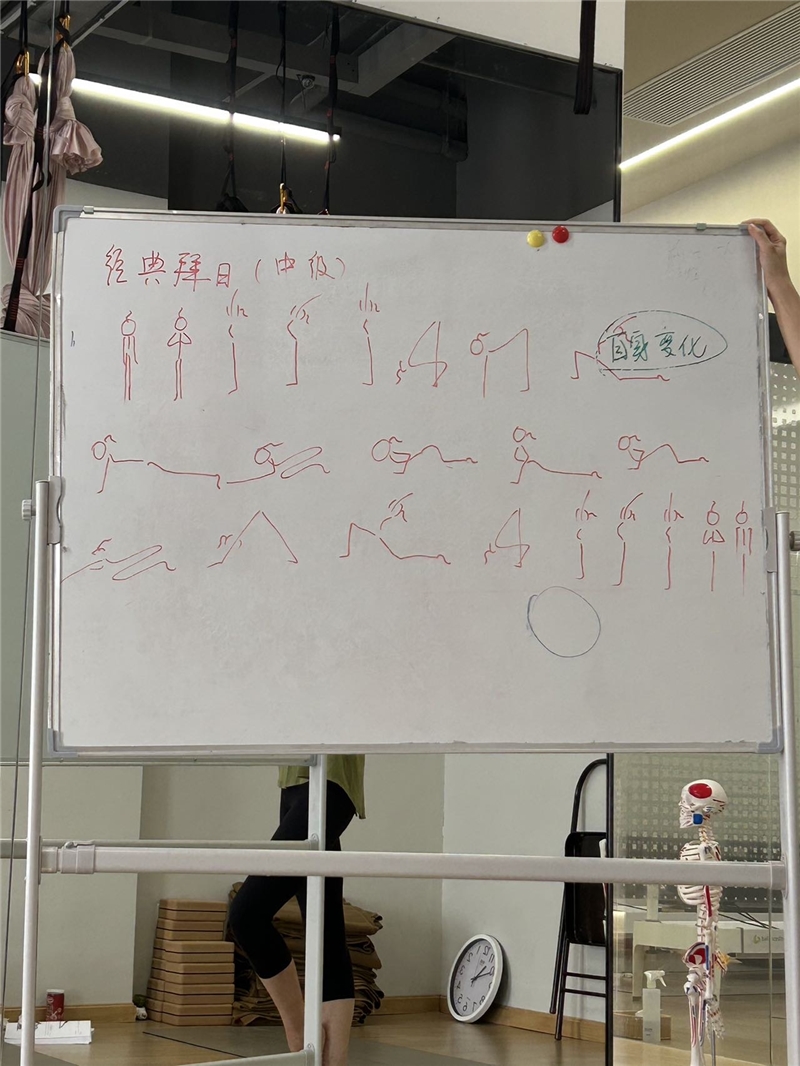 经典拜日(中级)
自身变化